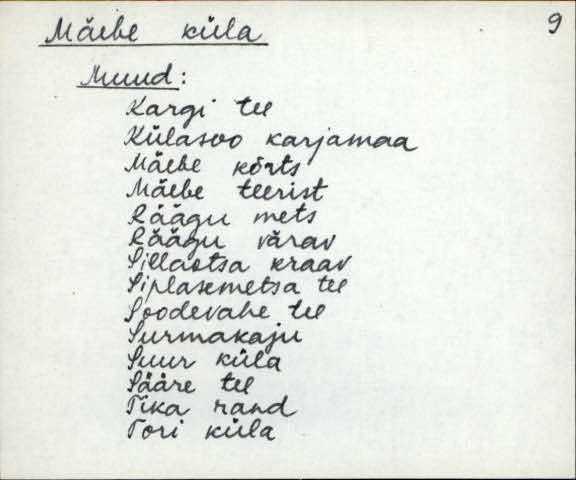 9
Mäebe küla
Muud:
Kargi tee
Külasoo karjamaa
Mäebe kõrts
Mäebe teerist
Räägu mets
Räägu värav
Sillaotsa kraav
Siplasemetsa tee
Soodevahe tee
Surmakaju
Suur küla
Sääre tee
Tika rand
Tori küla